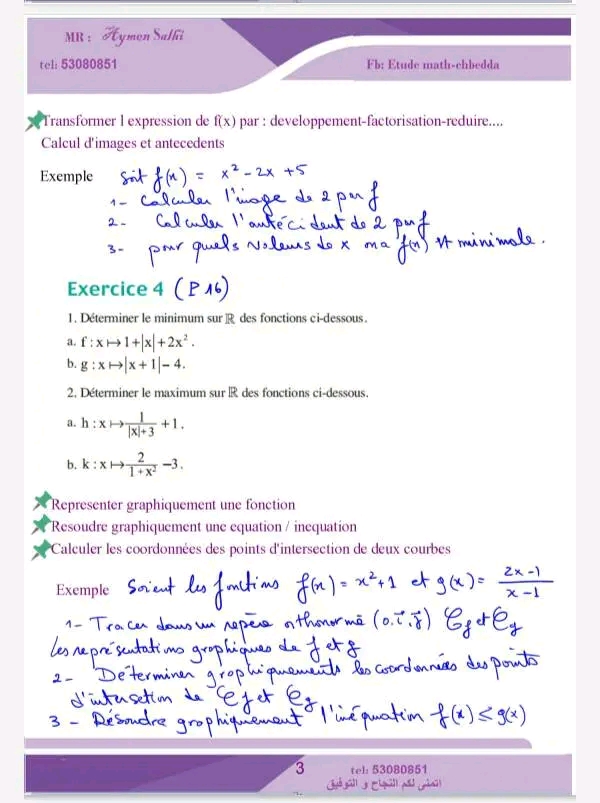 MR : Aymen Salhi
tel: 53080851
Fb: Etude math-chbedda
Transformer l expression de f(x) par : developpement-factorisation-reduire....
Calcul d'images et antecedents
Exemple soit f(x) = x² - 2x + 5
1- Calculer l'image de 2 par f
2- Calculer l'antécident de 2 par f
3- pour quels valeurs de x on a f(x) st minimale.
Exercice 4 (P 16)
1. Déterminer le minimum sur ℝ des fonctions ci-dessous.
a. f : x ↦ 1+|x|+2x².
b. g : x ↦ |x+1|−4.
2. Déterminer le maximum sur ℝ des fonctions ci-dessous.
a. h : x ↦ 1/(|x|+3) +1.
b. k : x ↦ 2/(1+x²) −3.
Representer graphiquement une fonction
Resoudre graphiquement une equation / inequation
Calculer les coordonnées des points d'intersection de deux courbes
Exemple Soient les fonctions f(x) = x²+1 et g(x) = (2x-1)/(x-1)
1- Tracer dans un repère orthonormé (o.i⃗,j⃗) Cf et Cg
les représentations graphiques de f et g
2- Déterminer graphiquements les coordonnées des points
d'intersetion de Cf et Cg
3 - Résoudre graphiquement l'inéquation f(x) ≤ g(x)
3
tel: 53080851
اتمنى لكم النجاح و التوفيق